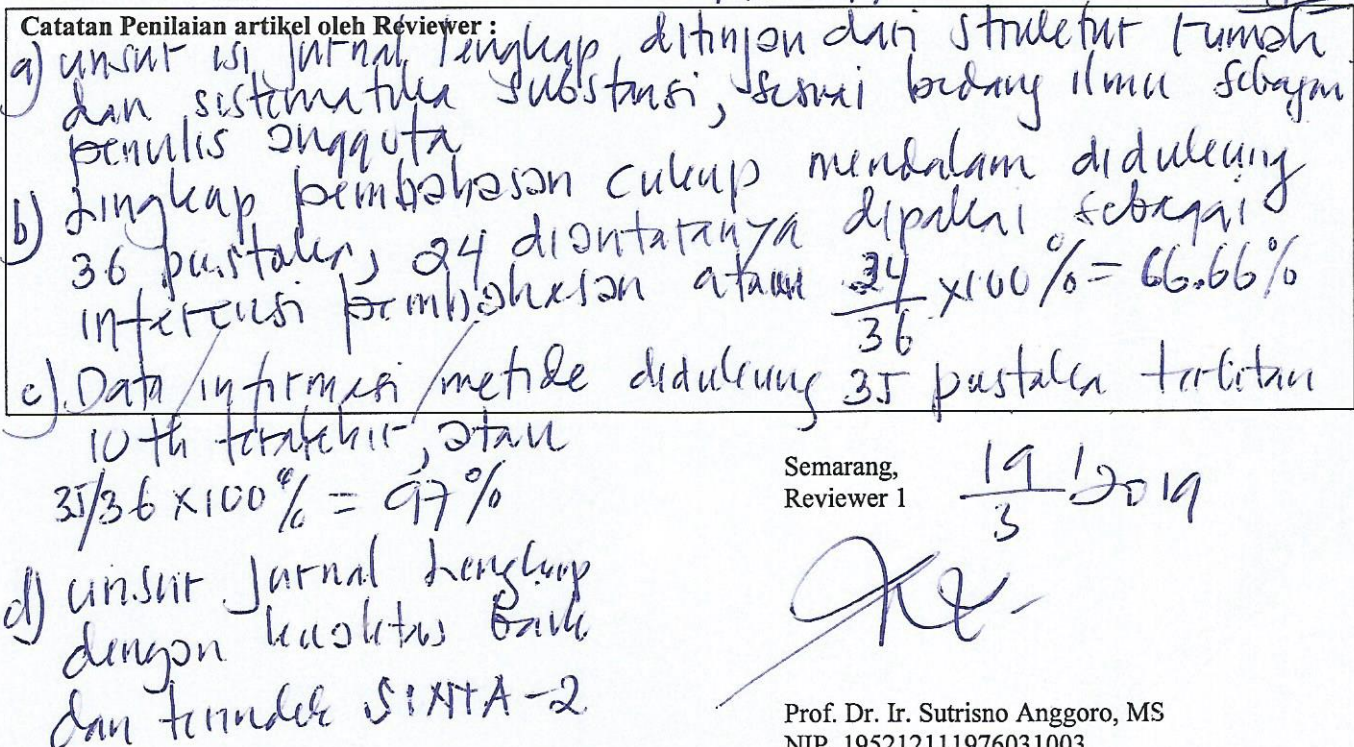 Catatan Penilaian artikel oleh Reviewer :
a) unsur isi jurnal lengkap ditinjau dari struktur rumah
dan sistematika substansi, sesuai bidang ilmu sebagai
penulis anggota
b) Lingkup pembahasan cukup mendalam didukung
36 pustaka, 24 diantaranya dipakai sebagai
interensi pembahasan atau 24/36 x100% = 66.66%
c) Data/informasi/metode didukung 35 pustaka terbitan
10 th terakhir, atau
35/36 x100% = 97%
d) unsur Jurnal Lengkap
dengan kualitas baik
dan terindek SINTA-2
Semarang, 19/3 2019
Reviewer 1
Prof. Dr. Ir. Sutrisno Anggoro, MS
NIP. 195212111976031003